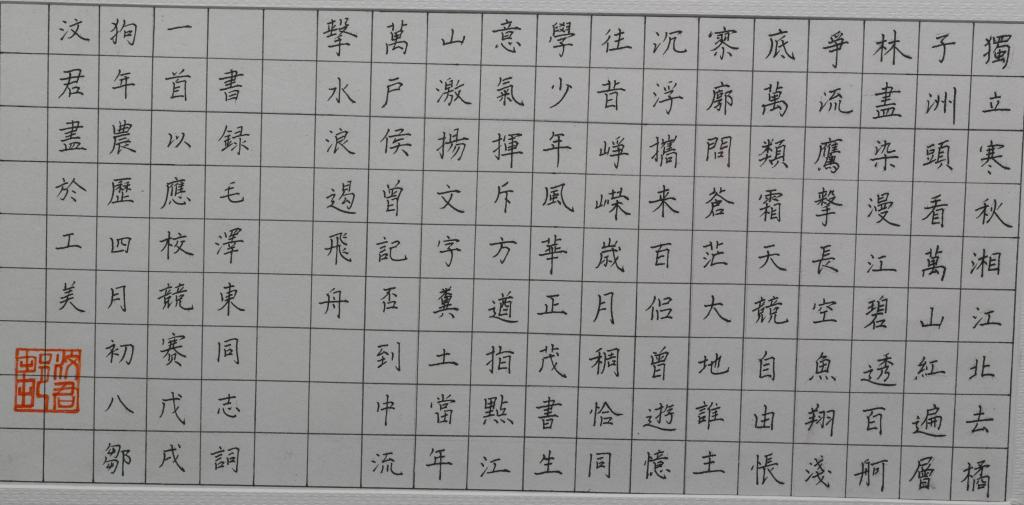 獨立寒秋湘江北去橘
子洲頭看萬山紅遍層
林盡染漫江碧透百舸
爭流鷹擊長空魚翔淺
底萬類霜天競自由悵
寥廓問蒼茫大地誰主
沉浮攜来百侶曾遊憶
往昔崢嶸歲月稠恰同
學少年風華正茂書生
意氣揮斥方遒指點江
山激揚文字糞土當年
萬戶侯曾記否到中流
擊水浪遏飛舟
書録毛澤東同志詞
一首以應校競賽戊戌
狗年農歷四月初八鄒
汶君盡於工美
汶君